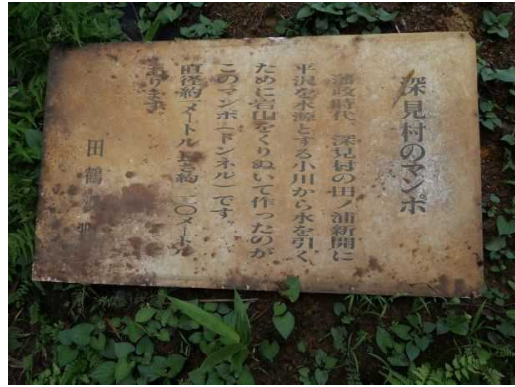 深見村のマンポ
藩政時代、深見村の田ノ浦新開に
平沢を水源とする小川から水を引く
ために岩山をくりぬいて作ったのが
このマンポ(トンネル)です。
直径約一メートル長さ約一二〇メートル
あります。
田鶴浜町